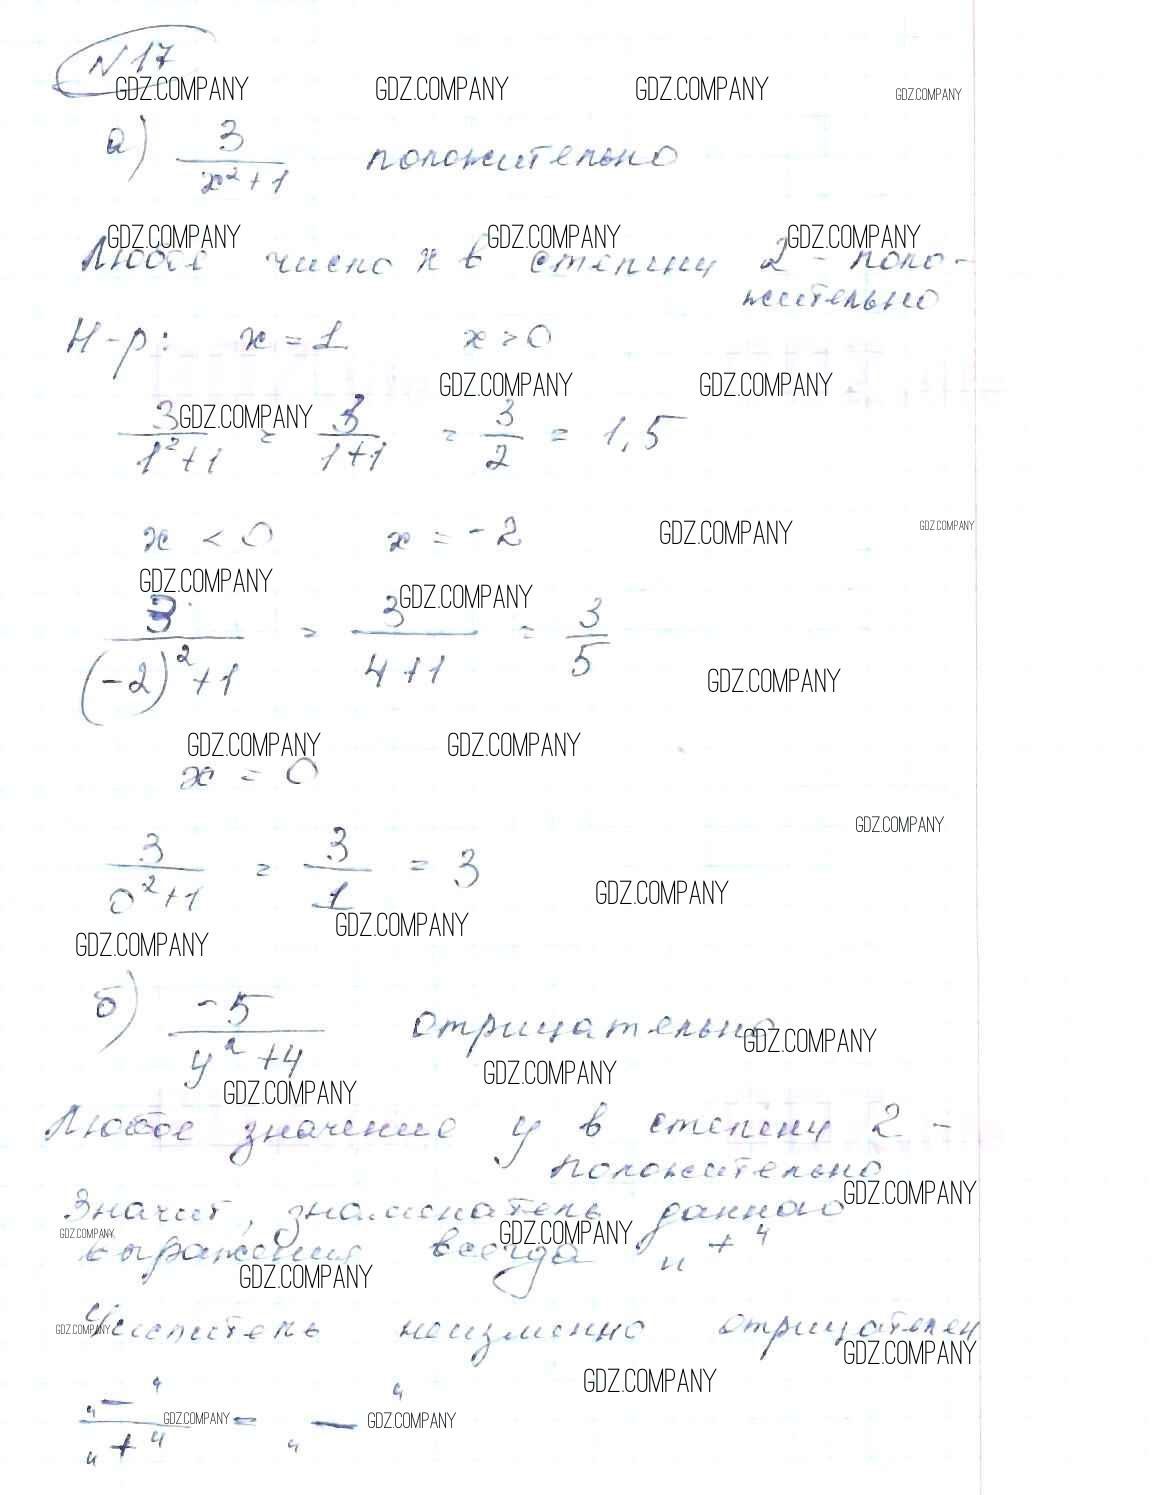 N 17
GDZ.COMPANY GDZ.COMPANY GDZ.COMPANY GDZ.COMPANY
а) 3/(x²+1) положительно
GDZ.COMPANY GDZ.COMPANY GDZ.COMPANY
Любое число x в степени 2 - поло-
жительно
Н-р: x = 1 x > 0
GDZ.COMPANY GDZ.COMPANY
GDZ.COMPANY
3/(1²+1) = 3/(1+1) = 3/2 = 1,5
x < 0 x = -2 GDZ.COMPANY GDZ.COMPANY
GDZ.COMPANY GDZ.COMPANY
3/((-2)²+1) = 3/(4+1) = 3/5
GDZ.COMPANY
GDZ.COMPANY GDZ.COMPANY
x = 0
GDZ.COMPANY
3/(0²+1) = 3/1 = 3
GDZ.COMPANY
GDZ.COMPANY GDZ.COMPANY
б) -5/(y²+4) отрицательно
GDZ.COMPANY
GDZ.COMPANY
GDZ.COMPANY
Любое значение y в степени 2 -
положительно
GDZ.COMPANY
Значит, знаменатель данного
GDZ.COMPANY GDZ.COMPANY
выражения всегда „+“
GDZ.COMPANY
Числитель неизменно отрицателен
GDZ.COMPANY GDZ.COMPANY
GDZ.COMPANY
„-“/„+“ = „-“
GDZ.COMPANY GDZ.COMPANY